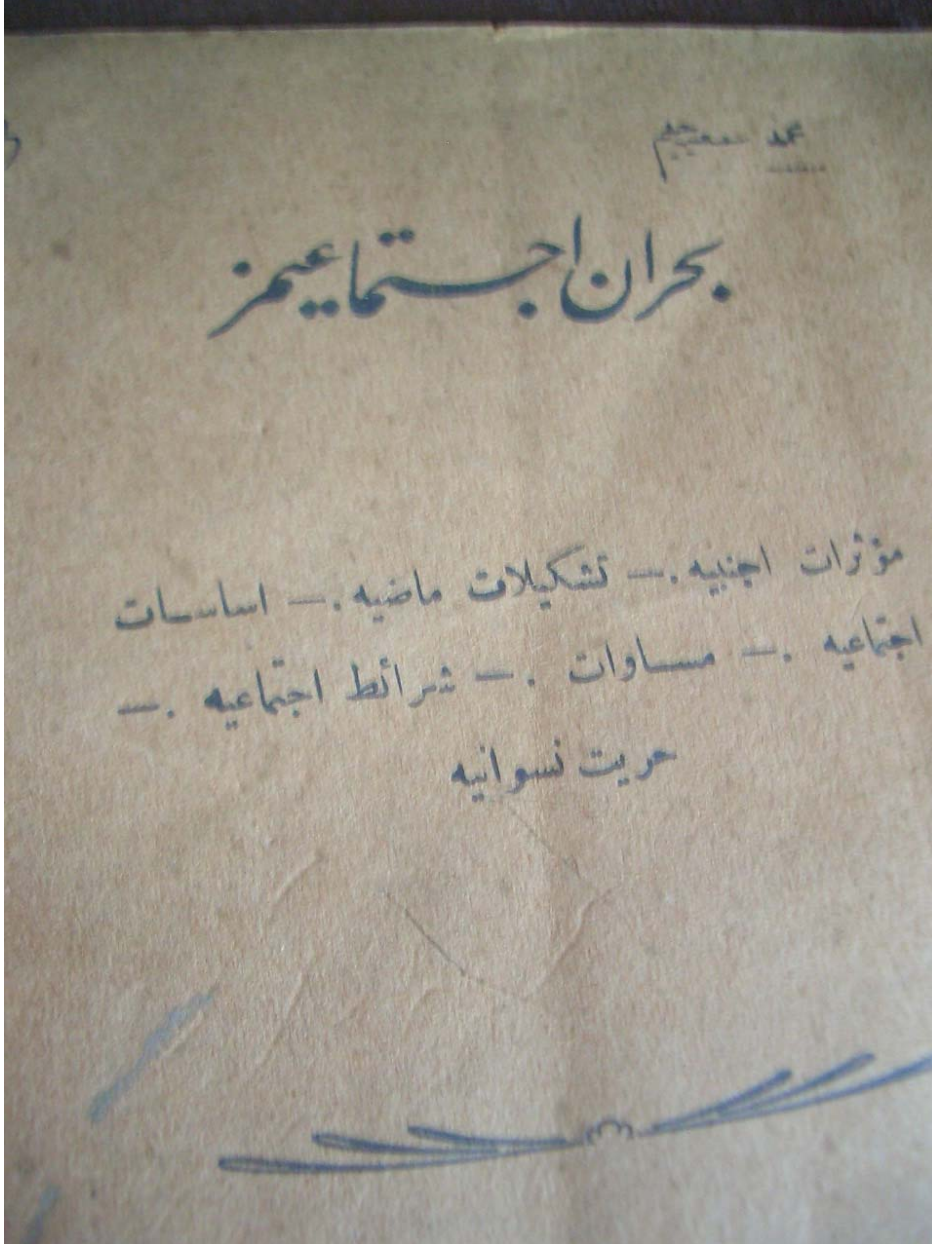 محمد
بحران اجتماعيمز
مؤثرات اجنبيه .— تشكيلات ماضيه .— اساسات
اجتماعيه .— مساوات .— شرائط اجتماعيه .—
حريت نسوانيه